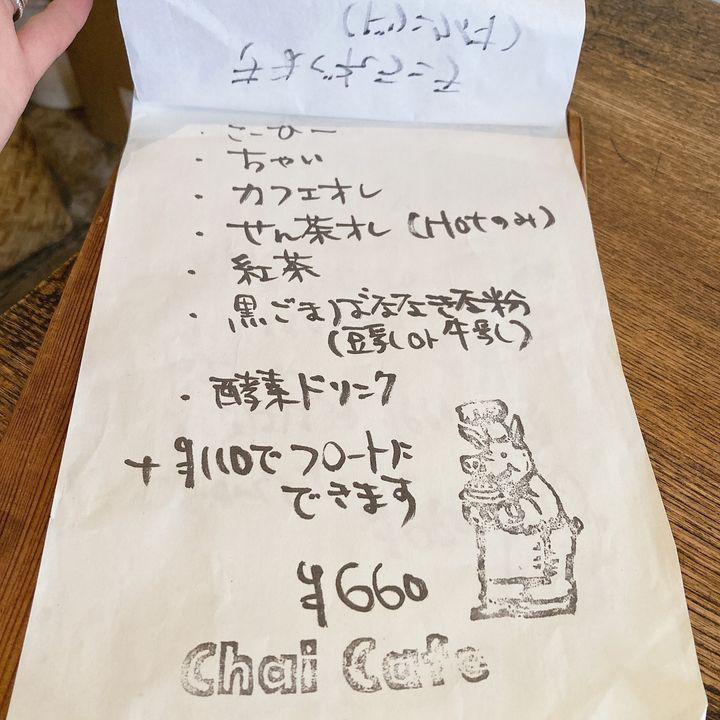 ・こーひー
・ちゃい
・カフェオレ
・せん茶オレ(Hotのみ)
・紅茶
・黒ごまばななきな粉
(豆乳or牛乳)
・酵素ドリンク
+¥110でフロートに
できます
¥660
Chai Cafe